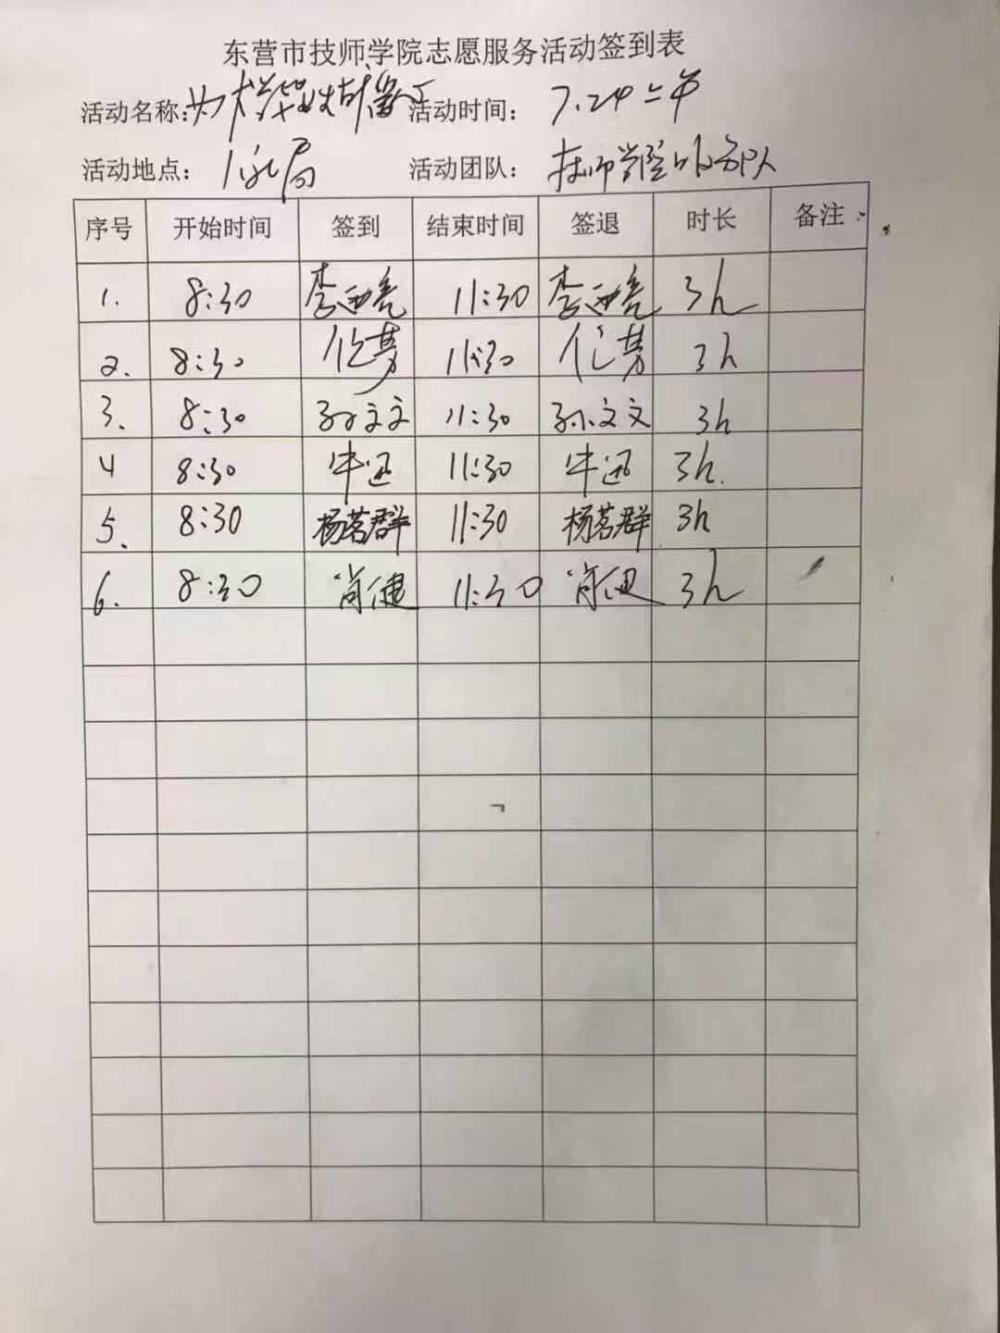 东营市技师学院志愿服务活动签到表
活动名称: 活动时间: 7.24
活动地点: 局 活动团队: 技师学院 服务队
序号 开始时间 签到 结束时间 签退 时长 备注
1. 8:30 李 亮 11:30 李 亮 3h
2. 8:30 11:30 3h
3. 8:30 孙文文 11:30 孙文文 3h
4 8:30 牛迅 11:30 牛迅 3h.
5. 8:30 杨茗群 11:30 杨茗群 3h
6. 8:30 肖健 11:30 肖健 3h